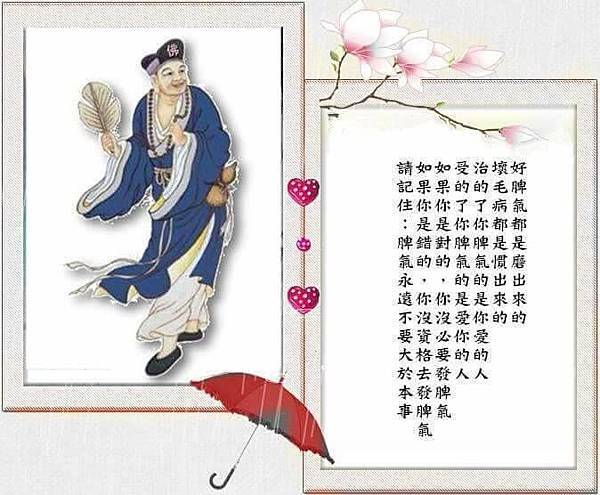 佛
好脾氣都是磨出來的
壞毛病都是慣出來的
治的了你脾氣的是你愛的人
受的了你脾氣的是愛你的人
如果你是對的，你沒必要發脾氣
如果你是錯的，你沒資格去發脾氣
請記住：脾氣永遠不要大於本事